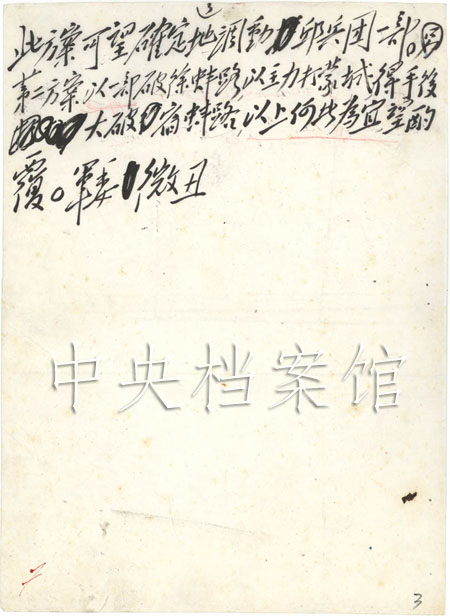 此方案可望確定地調動邱兵团一部。
第二方案以一部破徐蚌路以主力打蒙城得手後
大破宿蚌路，以上何者为宜望酌
覆。軍委微丑
中央档案馆
3